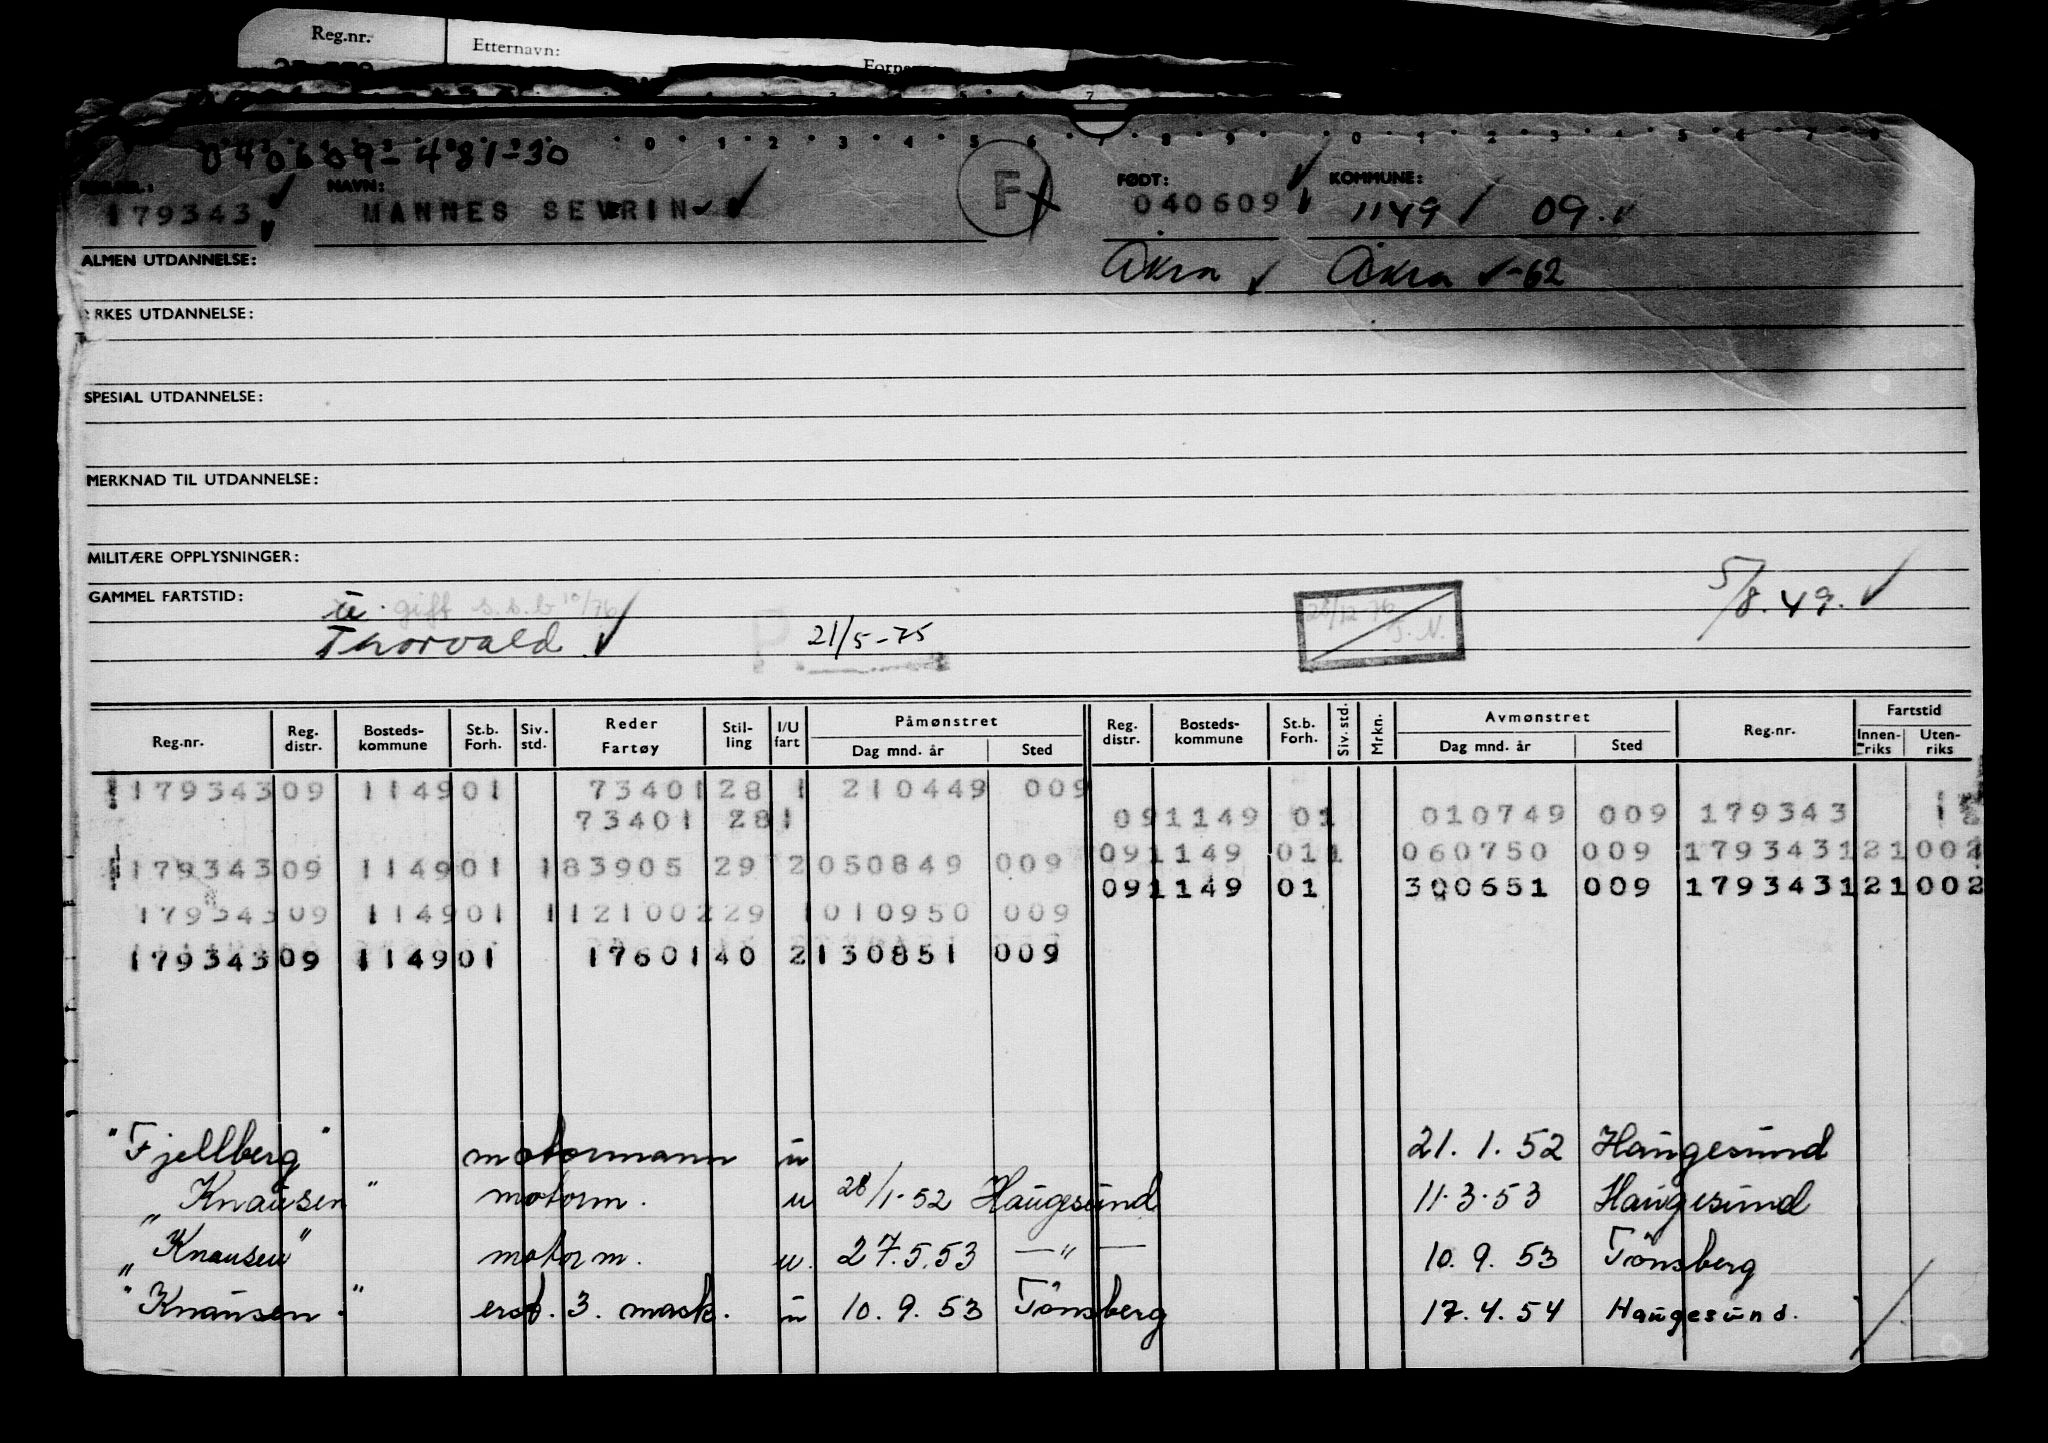 Reg.nr. Etternavn:
040609-48130
REG.NR.: NAVN: F FØDT: KOMMUNE:
179343 MANNES SEVRIN 040609 1149 09.
ALMEN UTDANNELSE: Åkra Åkra -62
YRKES UTDANNELSE:
SPESIAL UTDANNELSE:
MERKNAD TIL UTDANNELSE:
MILITÆRE OPPLYSNINGER:
GAMMEL FARTSTID: gift s.s.b 10/76 28/12-76 5/8.49.
Thorvald 21/5-75
Reg.nr. Reg. distr. Bosteds-kommune St.b. Forh. Siv. std. Reder Fartøy Stil-ling I/U fart Påmønstret Dag mnd. år Sted Reg. distr. Bosteds-kommune St.b. Forh. Siv. std. Mrkn. Avmønstret Dag mnd. år Sted Reg.nr. Fartstid Innen-riks Uten-riks
179343 09 1149 01 73401 28 1 210449 009
73401 28 1 09 1149 01 010749 009 179343
09 1149 01 1 060750 009 179343 1 21 002
179343 09 1149 01 183905 29 2 050849 009
09 1149 01 300651 009 179343 1 21 002
179343 09 1149 01 1121002 29 1 010950 009
179343 09 1149 01 17601 40 2 130851 009
"Fjellberg" motormann u 21. 1. 52 Haugesund
"Knausen" motorm. u 28/1-52 Haugesund 11.3.53 Haugesund
"Knausen" motorm. u. 27.5.53 —"— 10. 9. 53 Tönsberg
"Knausen." erst. 3. mask. u 10. 9. 53 Tönsberg 17.4.54 Haugesund.